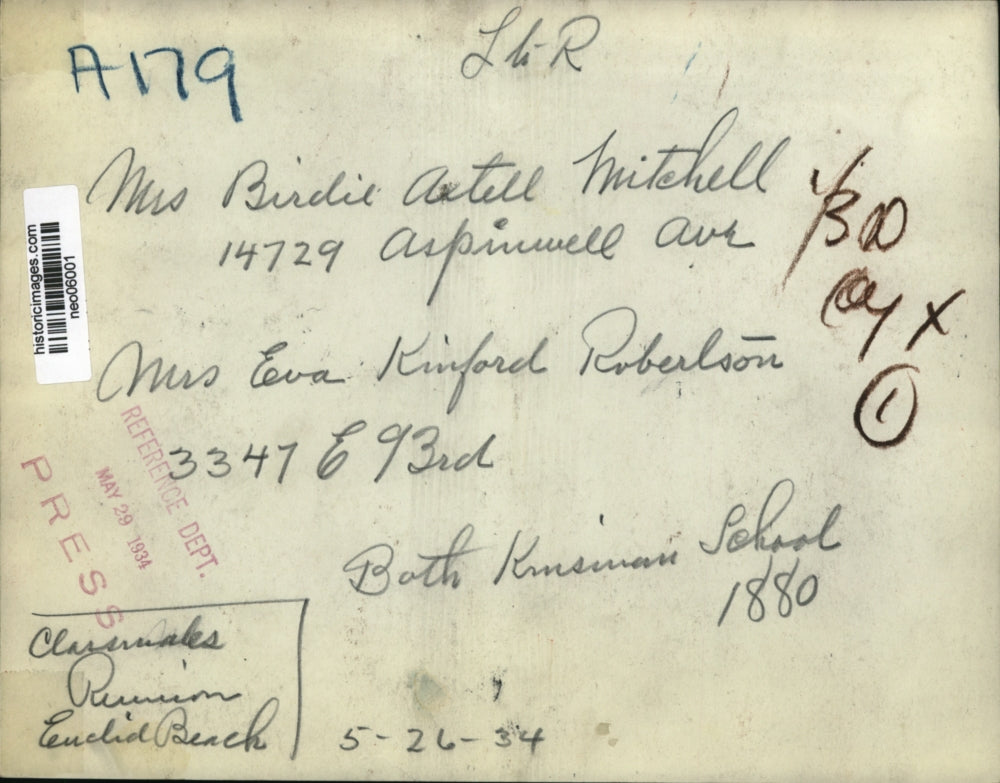 L to R
A179
Mrs Birdie Astell Mitchell
14729 Aspinwell Ave
Mrs Eva Kinford Robertson
3347 E 93rd
Both Kinsman School
1880
Classmates
Reunion
Euclid Beach
5-26-34
X
1
REFERENCE DEPT.
MAY 29 1934
PRESS
historicimages.com
neo06001